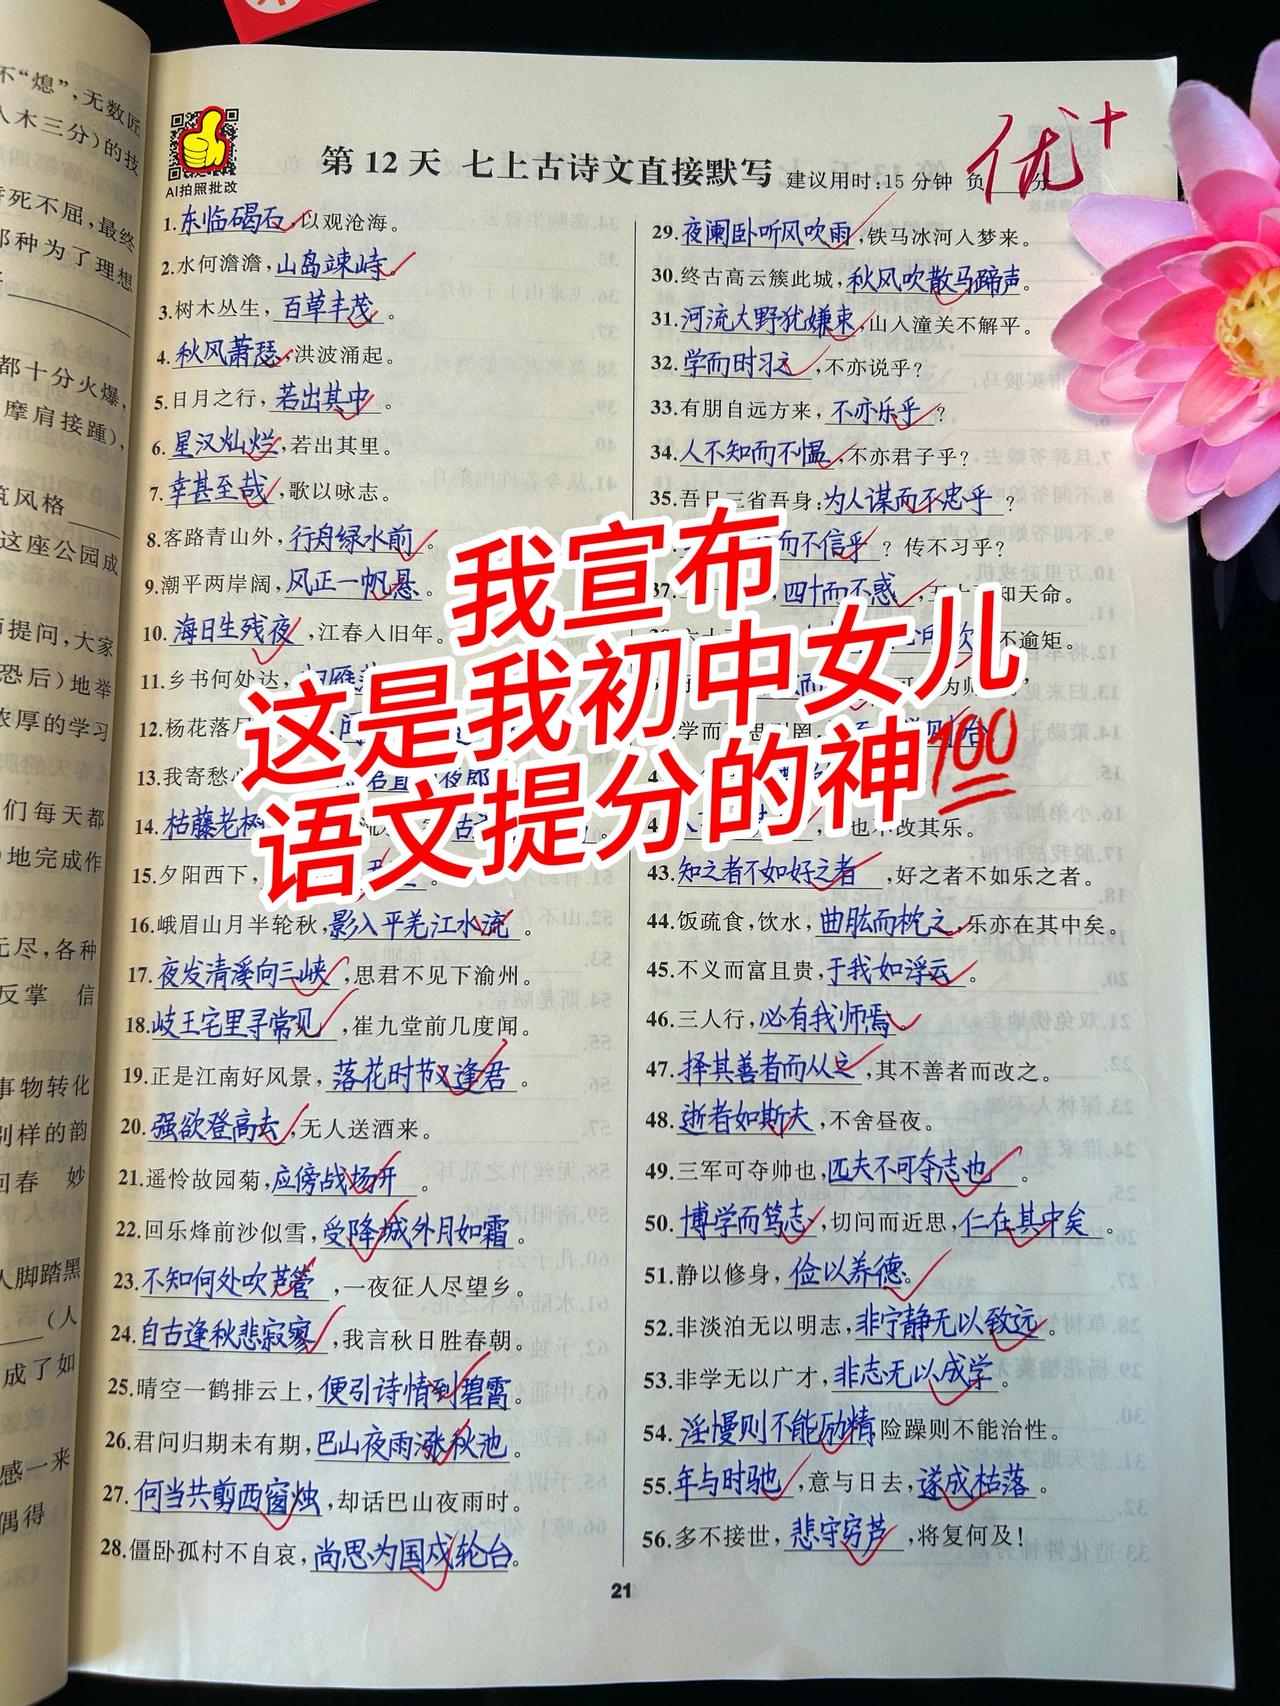 不“熄”，无数匠
人木三分）的技
死不屈，最终
那种为了理想
都十分火爆，
摩肩接踵），
筑风格
这座公园成
提问，大家
恐后）地举
浓厚的学习
们每天都
地完成作
无尽，各种
反掌 信
事物转化
别样的韵
回春 妙
人脚踏黑
（人
成了如
感一来
偶得
AI拍照批改
第12天 七上古诗文直接默写 建议用时:15分钟 负 分
优+
1.东临碣石，以观沧海。
2.水何澹澹，山岛竦峙。
3.树木丛生，百草丰茂。
4.秋风萧瑟，洪波涌起。
5.日月之行，若出其中。
6.星汉灿烂，若出其里。
7.幸甚至哉，歌以咏志。
8.客路青山外，行舟绿水前。
9.潮平两岸阔，风正一帆悬。
10.海日生残夜，江春入旧年。
11.乡书何处达，
12.杨花落
13.我寄愁
14.枯藤老树
15.夕阳西下，
16.峨眉山月半轮秋，影入平羌江水流。
17.夜发清溪向三峡，思君不见下渝州。
18.岐王宅里寻常见，崔九堂前几度闻。
19.正是江南好风景，落花时节又逢君。
20.强欲登高去，无人送酒来。
21.遥怜故园菊，应傍战场开。
22.回乐烽前沙似雪，受降城外月如霜。
23.不知何处吹芦管，一夜征人尽望乡。
24.自古逢秋悲寂寥，我言秋日胜春朝。
25.晴空一鹤排云上，便引诗情到碧霄。
26.君问归期未有期，巴山夜雨涨秋池。
27.何当共剪西窗烛，却话巴山夜雨时。
28.僵卧孤村不自哀，尚思为国戍轮台。
29.夜阑卧听风吹雨，铁马冰河入梦来。
30.终古高云簇此城，秋风吹散马蹄声。
31.河流大野犹嫌束，山入潼关不解平。
32.学而时习之，不亦说乎？
33.有朋自远方来，不亦乐乎？
34.人不知而不愠，不亦君子乎？
35.吾日三省吾身:为人谋而不忠乎？
而不信乎？传不习乎？
37. 四十而不惑，五十 知天命。
不逾矩。
为师
学而 思则罔
也不改其乐。
43.知之者不如好之者，好之者不如乐之者。
44.饭疏食，饮水，曲肱而枕之，乐亦在其中矣。
45.不义而富且贵，于我如浮云。
46.三人行，必有我师焉。
47.择其善者而从之，其不善者而改之。
48.逝者如斯夫，不舍昼夜。
49.三军可夺帅也，匹夫不可夺志也。
50.博学而笃志，切问而近思，仁在其中矣。
51.静以修身，俭以养德。
52.非淡泊无以明志，非宁静无以致远。
53.非学无以广才，非志无以成学。
54.淫慢则不能励精，险躁则不能治性。
55.年与时驰，意与日去，遂成枯落。
56.多不接世，悲守穷芦，将复何及！
21
我宣布
这是我初中女儿
语文提分的神100